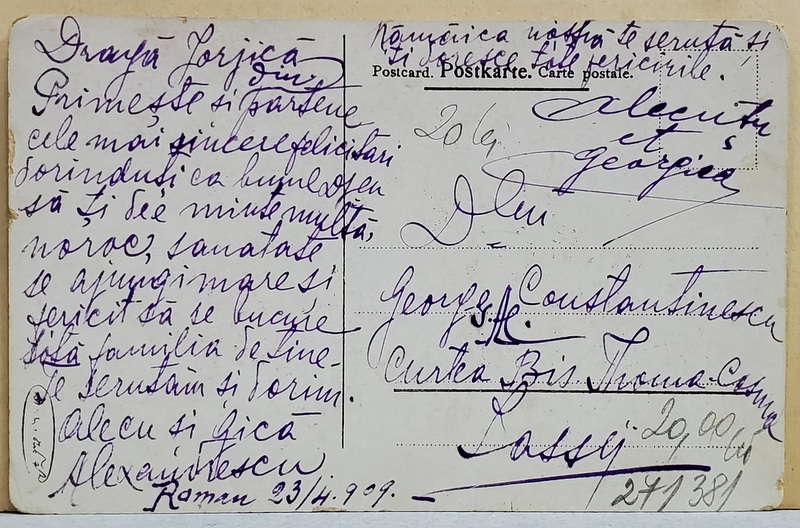 Dragă Jorjică
Primește si din partene
cele mai sincere felicitari
dorinduți ca bunul D-zeu
să ți dee minte multă,
noroc, sanatate
se ajungi mare si
fericit să se bucure
totă familia de tine
te serutăm si dorim.
Alecu si Gică
Alexandrescu
Roman 23/4.909.
Mămăica nostră te serută si
ti doresce tote fericirile.
Postcard. Postkarte. Carte postale.
Alecu
et
Georgica
20 lei
Dlui
George Constantinescu
Curtea Bis Thoma-Cosma
Iassy
20,00 lei
271381